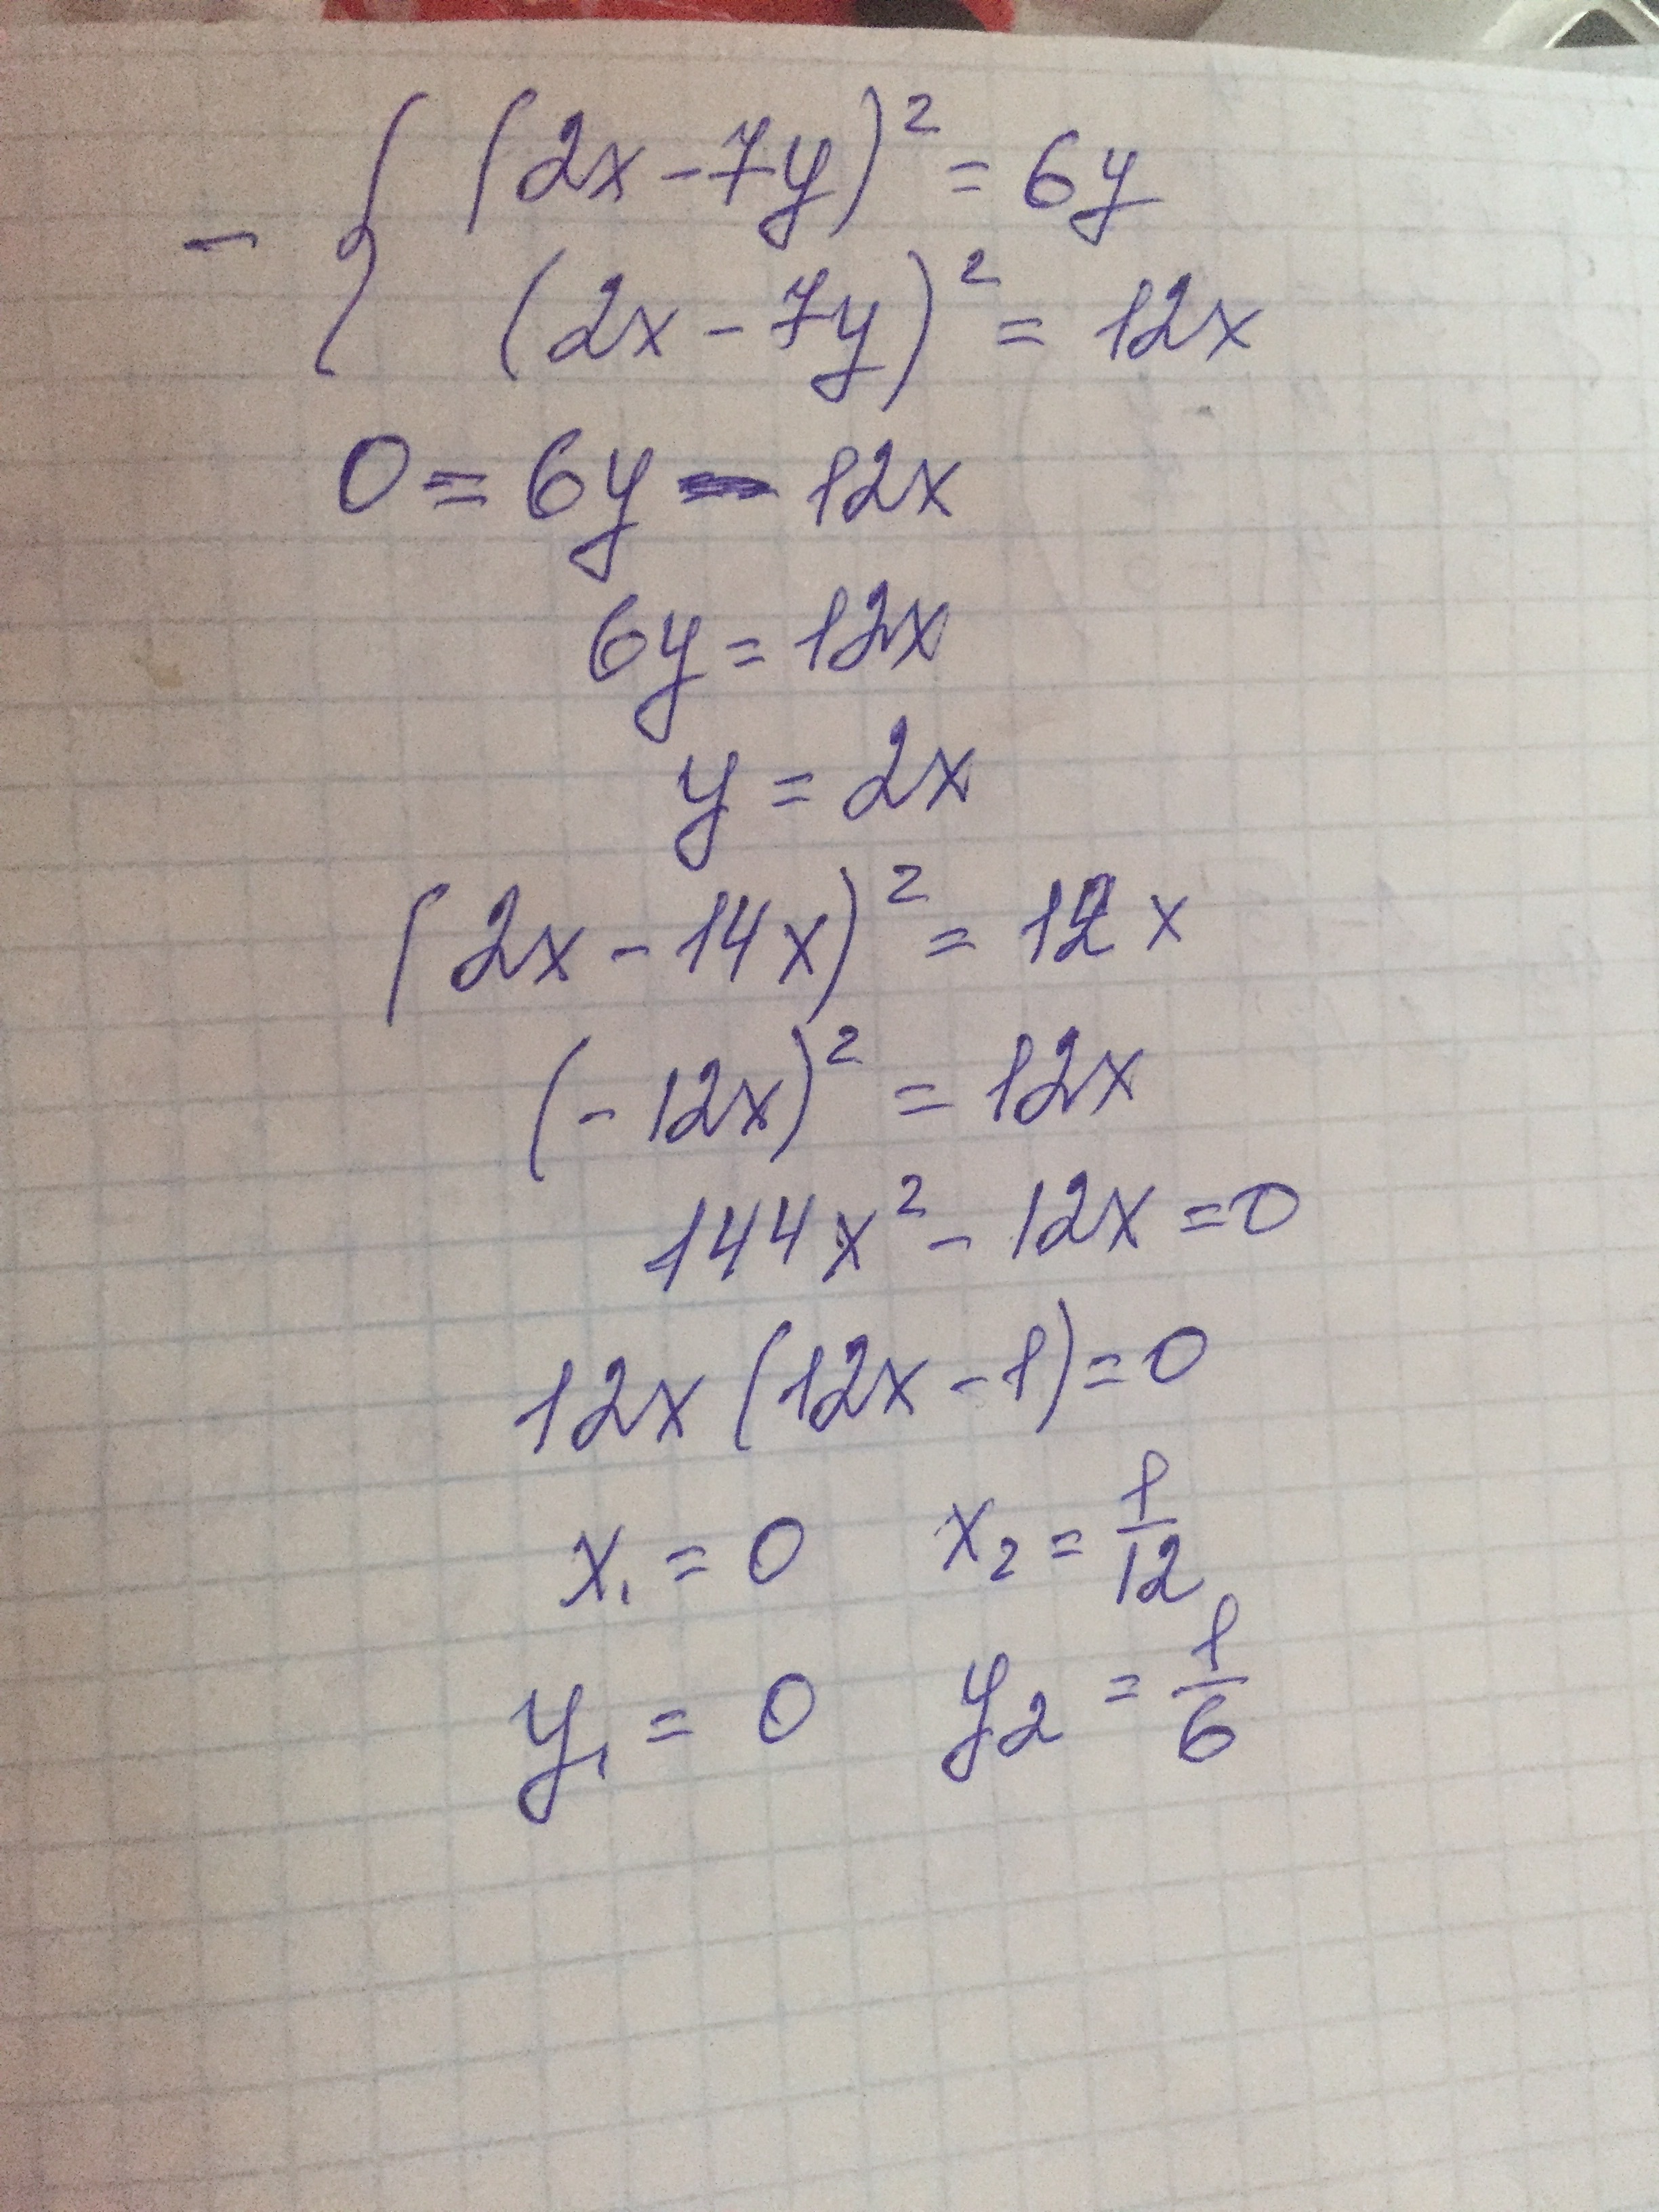 - { (2x - 7y)² = 6y
(2x - 7y)² = 12x
0 = 6y - 12x
6y = 12x
y = 2x
(2x - 14x)² = 12x
(- 12x)² = 12x
144x² - 12x = 0
12x (12x - 1) = 0
x₁ = 0 x₂ = 1/12
y₁ = 0 y₂ = 1/6